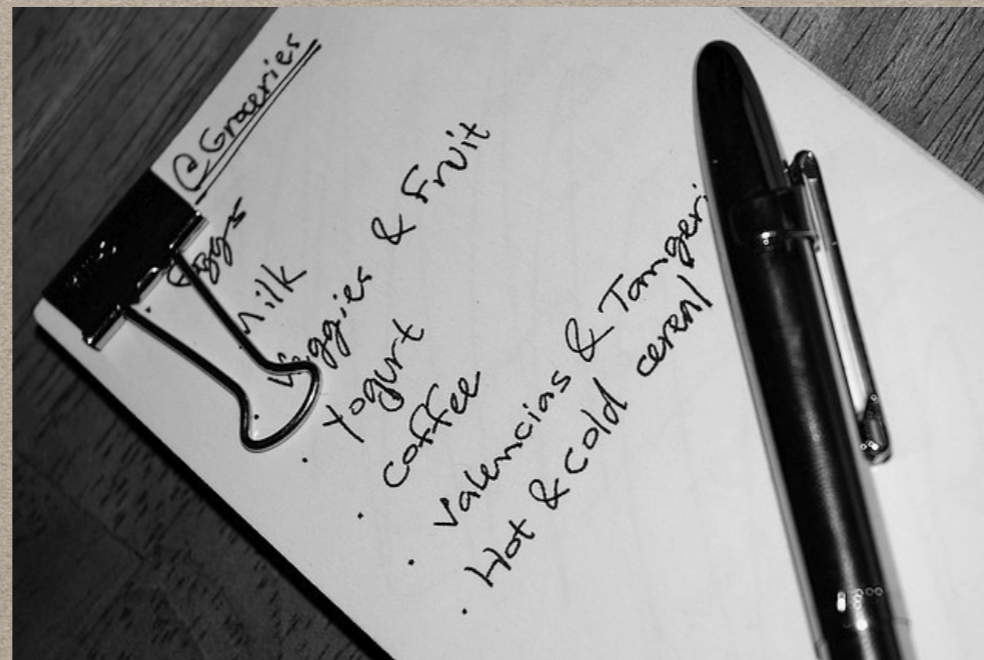 @Groceries
Eggs
Milk
Veggies & Fruit
· Yogurt
· Coffee
· Valencias & Tangeri
· Hot & cold cereal